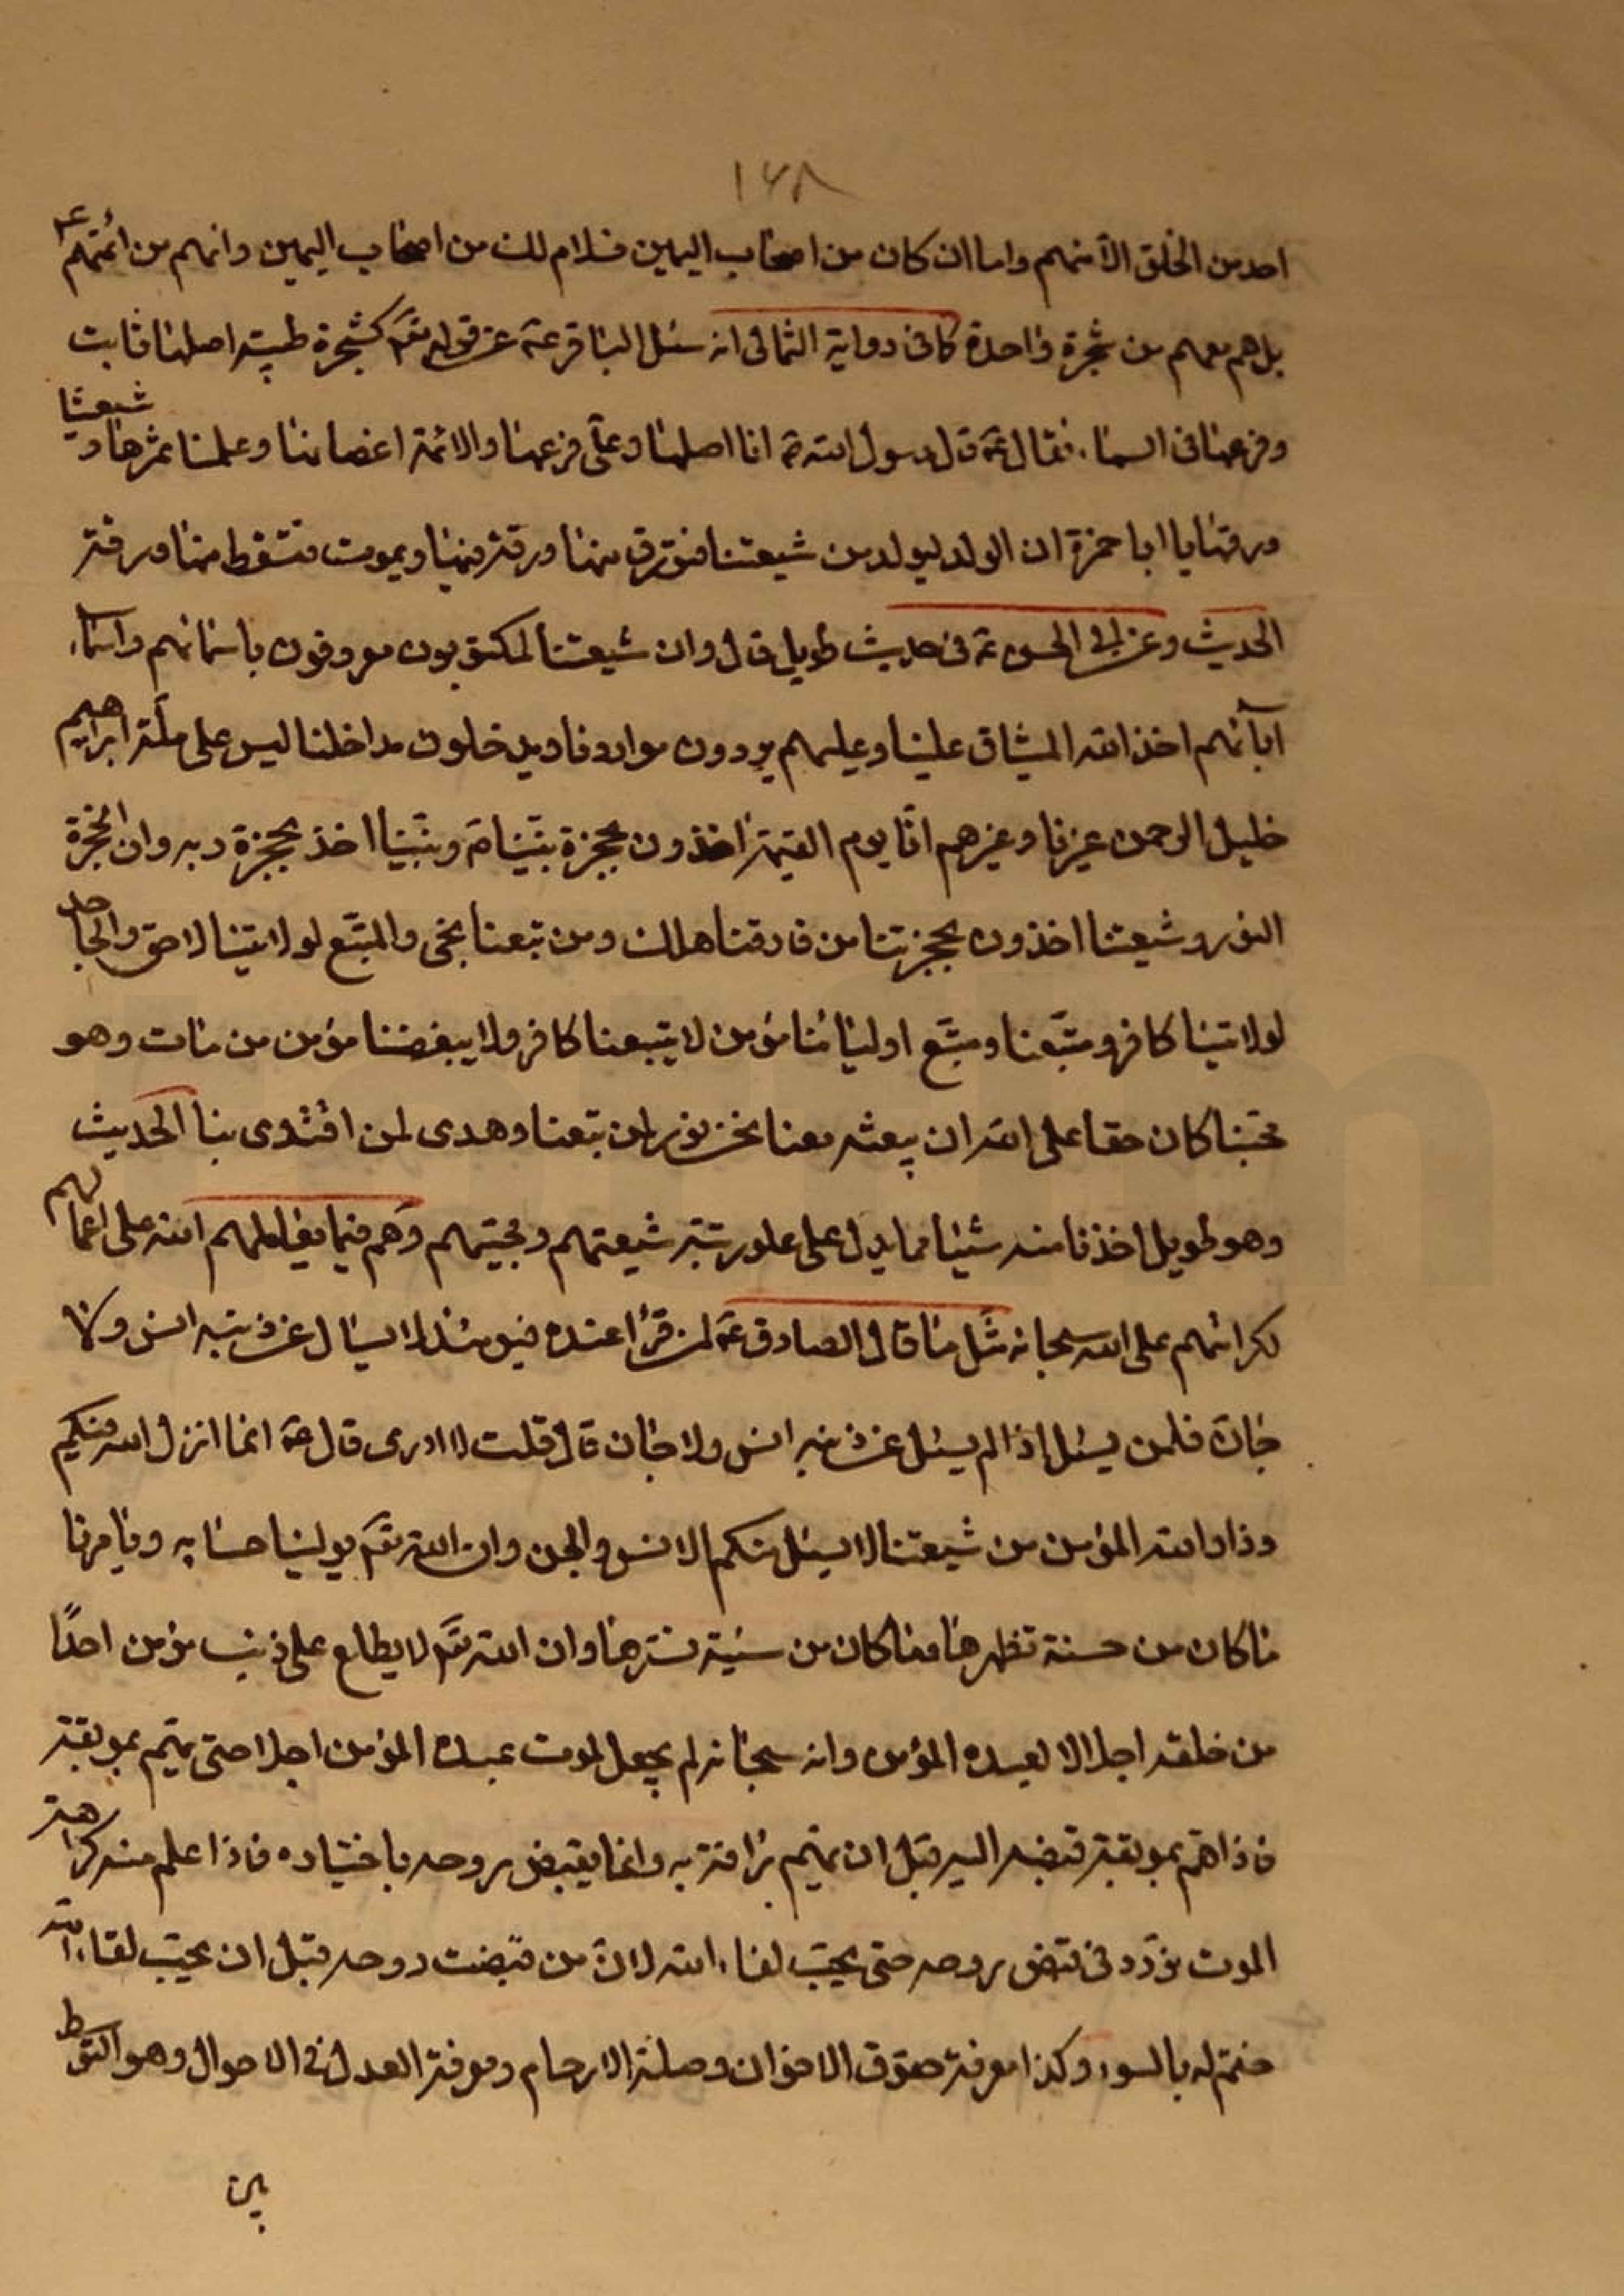 ١٦٨
احد من الخلق الا منهم واما ان كان من اصحاب اليمين فسلام لك من اصحاب اليمين وانهم من ائمتهم ع
بل هم معهم من شجرة واحدة كما فى رواية الثمالى انه سئل الباقر عة عن قوله تعم كشجرة طيبة اصلها ثابت
وفرعها فى السماء فقال عة قال رسول الله ص انا اصلها وعلى فرعها والائمة اغصاننا وعلمنا ثمرها و شيعتنا
ورقها يا ابا حمزة ان الولد ليولد من شيعتنا فتورق منها ورقة فيها ويموت فتسقط منها ورقة
الحديث وعن ابى الحسن عة فى حديث طويل قال وان شيعتنا لمكتوبون معروفون باسمائهم واسماء
آبائهم اخذ الله الميثاق علينا وعليهم يردون مواردنا ويدخلون مداخلنا ليس على ملة ابراهيم
خليل الرحمن غيرنا وغيرهم انا يوم القيمة اخذون بحجزة نبينا ص ونبينا اخذ بحجزة ربه وان الحجزة
النور وشيعتنا اخذون بحجزتنا من فارقنا هلك ومن تبعنا نجى والمتبع لولايتنا لاحق والجاحد
لولايتنا كافر ومتبعنا ومتبع اوليائنا مؤمن لا يتبعنا كافر ولا يبغضنا مؤمن من مات وهو
محبنا كان حقا على الله ان يبعثه معنا نحن نور لمن تبعنا وهدى لمن اقتدى بنا الحديث
وهو طويل اخذنا منه شيئا مما يدل على علو رتبة شيعتهم ومحبيهم وهم فيما يعاملهم الله على اعمالهم
لكرامتهم على الله سبحانه مثل ما قال الصادق عة لمن قرأ عنده فيومئذ لا يسال عن ذنبه انس ولا
جان فلمن يسئل اذا لم يسئل عن ذنبه انس ولا جان قال قلت لا ادرى قال عة انما انزل الله منكم
وذا والله المؤمن من شيعتنا لا يسئل منكم الانس والجن وان الله تعم يولينا حسابه ويامرنا
ما كان من حسنة نظهرها وما كان من سيئة نسترها وان الله تعم لا يطلع على ذنب مؤمن احدًا
من خلقه اجلالا لعبده المؤمن وانه سبحانه لم يجعل لموت عبده المؤمن اجلا حتى يهم بموبقة
فاذا هم بموبقة قبضه اليه قبل ان يهم به وانما يقبض روحه باختياره فاذا علم منه كراهة
الموت تردد فى قبض روحه حتى يحب لقاء الله لان من قبضت روحه قبل ان يحب لقاء الله
ختم له بالسوء وكذا معرفة حقوق الاخوان وصلة الارحام ومعرفة العدل فى الاحوال وهو التوسط
بين